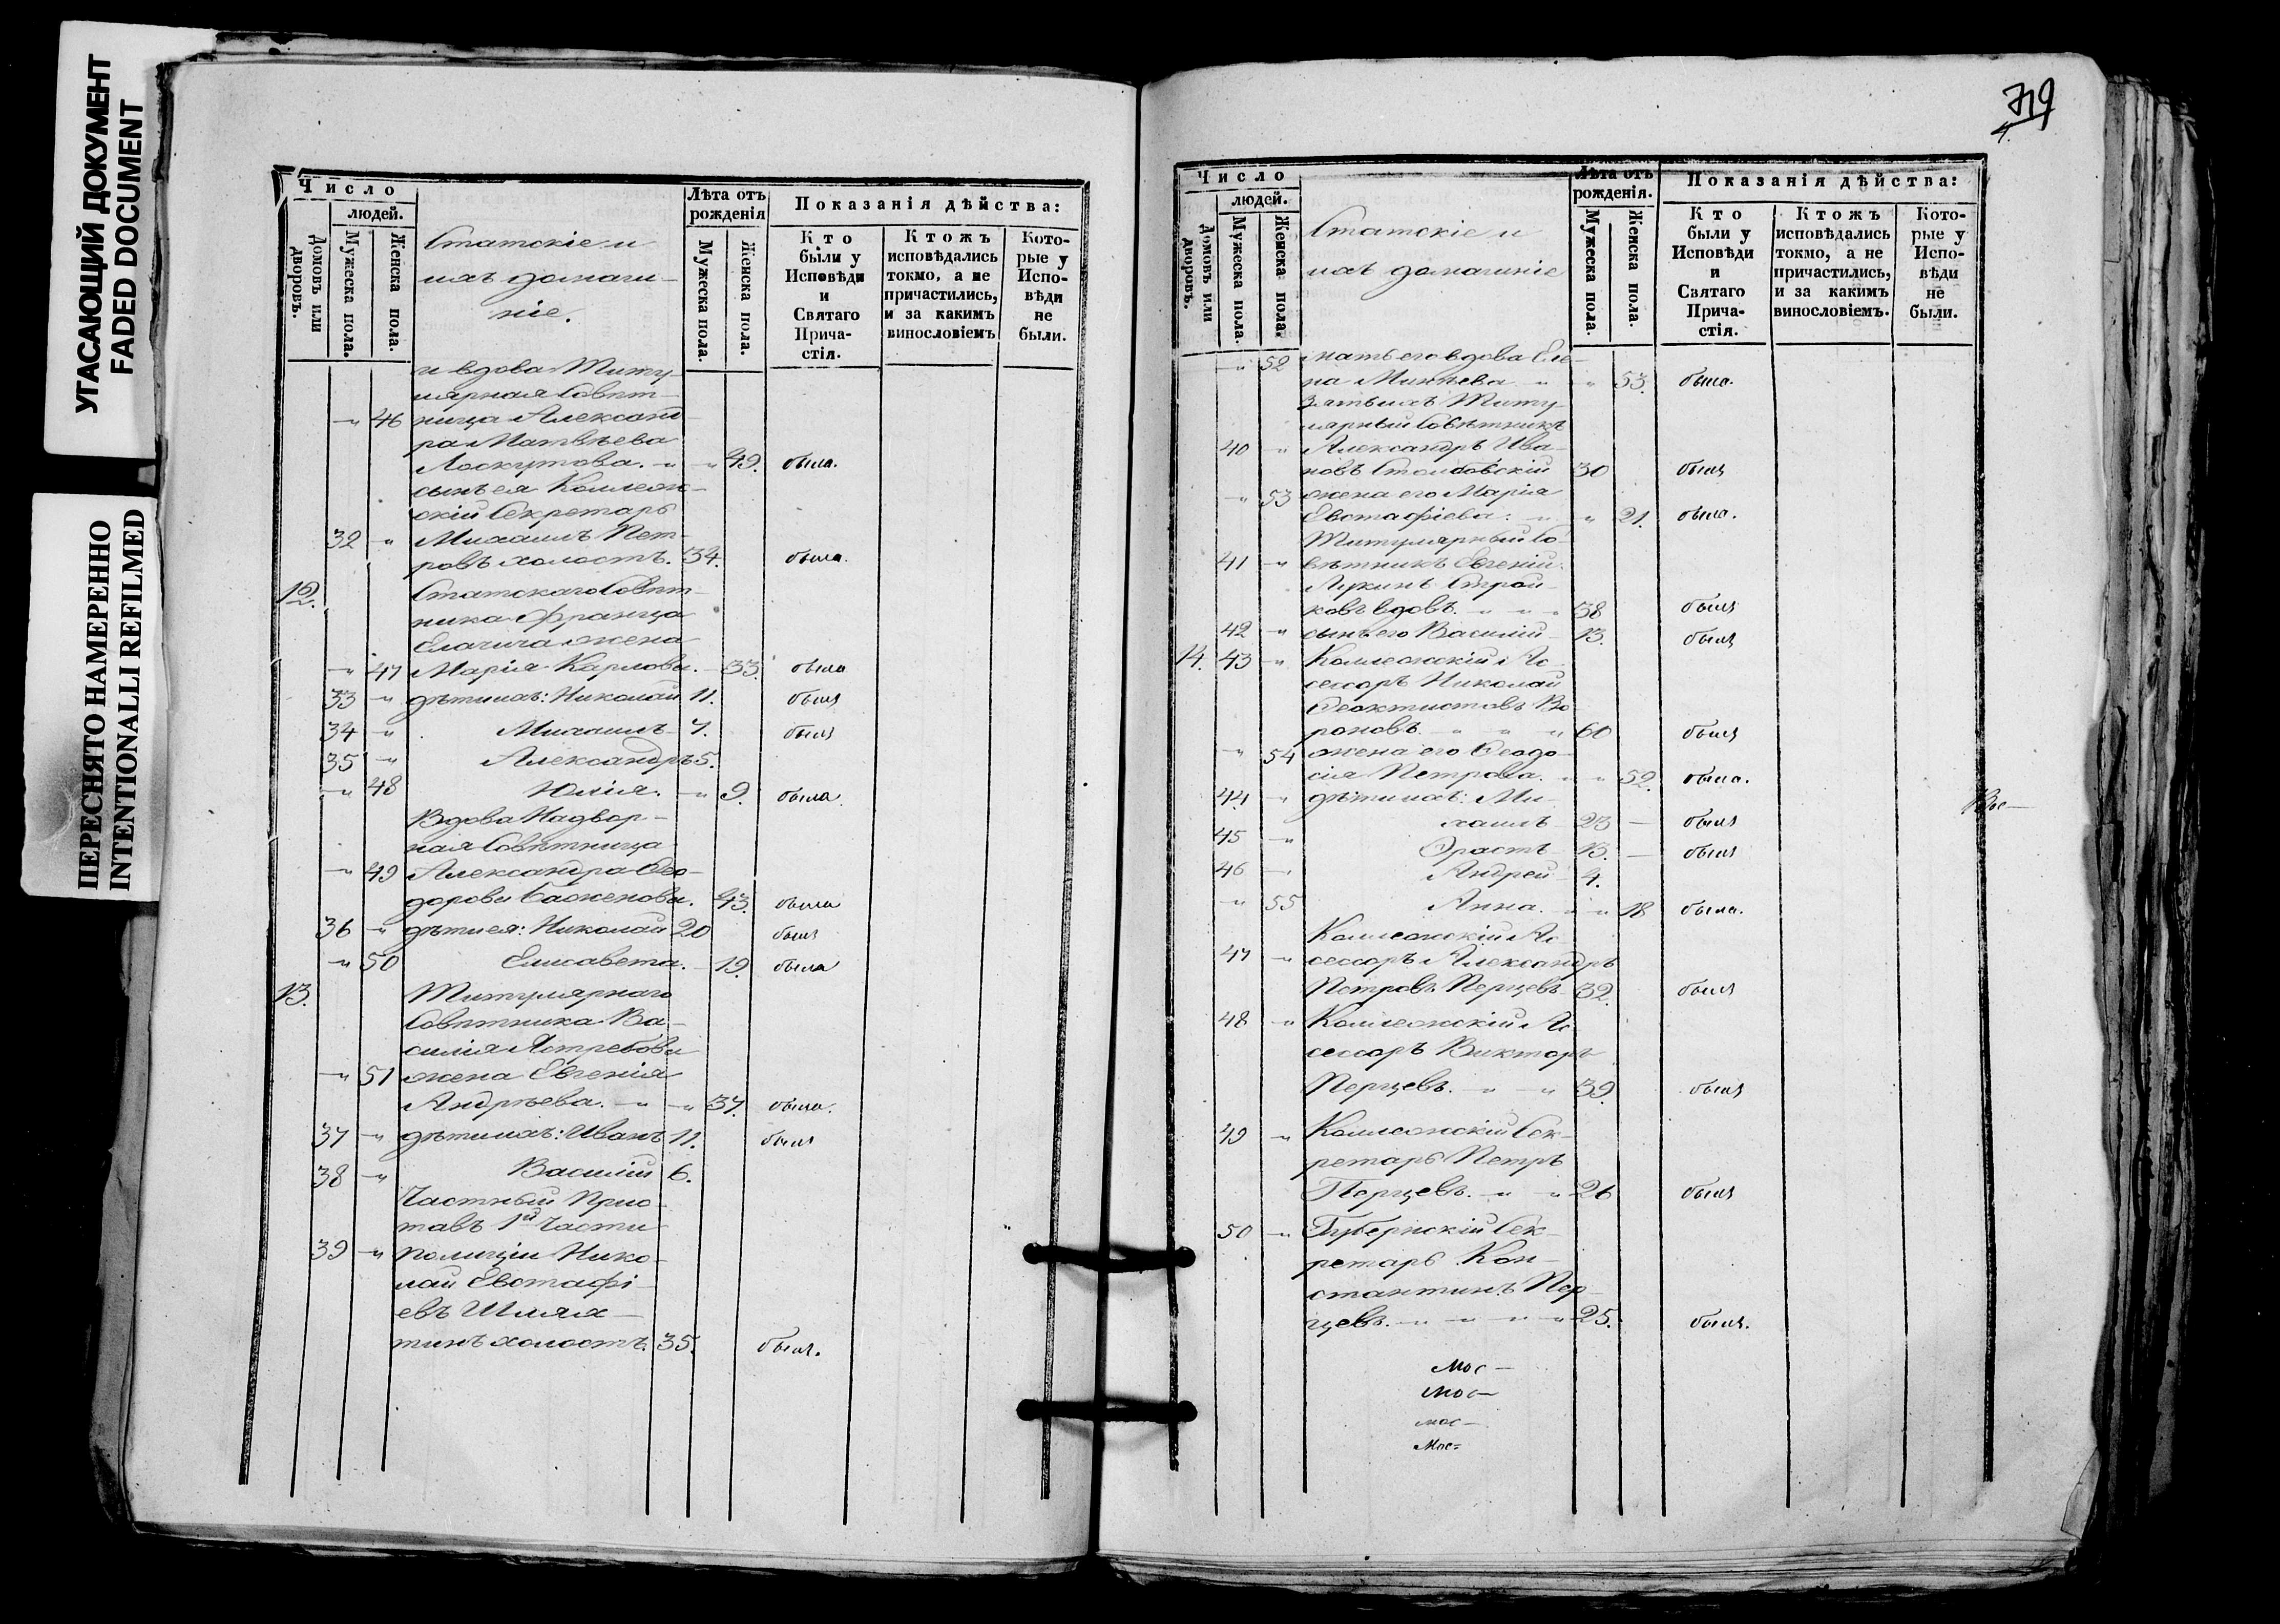 УГАСАЮЩИЙ ДОКУМЕНТ
FADED DOCUMENT
ПЕРЕСНЯТО НАМЕРЕННО
INTENTIONALLI REFILMED
Число
людей.
Домовъ или дворовъ.
Мужеска пола.
Женска пола.
Статскіе и
ихъ домаш-
ніе.
Лѣта отъ рожденія
Мужеска пола.
Женска пола.
Показанія дѣйства:
Кто были у Исповѣди и Святаго Прича-стія.
Ктожъ исповѣдались токмо, а не причастились, и за какимъ винословіемъ
Кото-рые у Испо-вѣди не были.
и вдова Титу-
лярная Совѣт-
" 46 ница Александ-
ра Матвѣева
Лоскутова. " " 49. была.
сынъ ея Коллеж-
скій Секретарь
32 " Михаилъ Пет-
ровъ холостъ. 34. была.
12. Статскаго Совѣт-
ника Франца
Елачича жена
" 47 Марія Карлова. 33. была
33 " дѣти ихъ: Николай 11. былъ
34 " Михаилъ 7. былъ
35 " Александръ 5.
" 48 Юлія. " 9. была.
Вдова Надвор-
ная Совѣтница
" 49 Александра Ѳео-
дорова Баженова. 43. была
36 " дѣти ея: Николай 20 былъ
" 50 Елисавета. 19. была
13. Титулярнаго
Совѣтника Ва-
силія Ястребова
" 51 жена Евгенія
Андреева. " " 37. была.
37 " дѣти ихъ: Иванъ 11. былъ
38 " Василій 6.
Частный Прис-
тавъ 1й Части
39 " полиціи Нико-
лай Евстафі-
евъ Шлях-
тинъ холостъ. 35. былъ.
719
Число
людей.
Домовъ или дворовъ.
Мужеска пола.
Женска пола.
Статскіе и
ихъ домашніе
Лѣта отъ рожденія.
Мужеска пола.
Женска пола.
Показанія дѣйства:
Кто были у Исповѣди и Святаго Прича-стія.
Ктожъ исповѣдались токмо, а не причастились, и за какимъ винословіемъ.
Кото-рые у Испо-вѣди не были.
" 52 мать его вдова Еле-
на " " 53. была.
Зять ихъ Титу-
лярный Совѣтникъ
40 " Александръ Ива-
новъ Столбовскій 30 былъ
" 53 жена его Марія
Евстафіева: " " 21. была.
Титулярный Со-
41 " вѣтникъ Евгеній
Лукинъ
ковъ вдовъ. " " " 38 былъ
42 " сынъ его Василій 13. былъ
14. 43 " Коллежскій Ас-
сессоръ Николай
Ѳеоктистовъ Во-
роновъ. " " " 60 былъ
" 54 жена его Ѳеодо-
сія Петрова. " " 52. была.
44 " дѣти ихъ: Ми-
хаилъ 23 — былъ
45 " Эрастъ 13. — былъ
46 " Андрей 4.
" 55 Анна. " " 18 была.
Коллежскій Ас-
47 " сессоръ Александръ
Петровъ Перцевъ 32. былъ
48 " Коллежскій Ас-
сессоръ Викторъ
Перцевъ. " " 39. былъ
49 " Коллежскій Сек-
ретарь Петръ
Перцевъ. " " 26 былъ
50 " Губернскій Сек-
ретарь Кон-
стантинъ Пер-
цевъ. " " " " 25. былъ.
Мос-
Мос-
мос-
Мос-